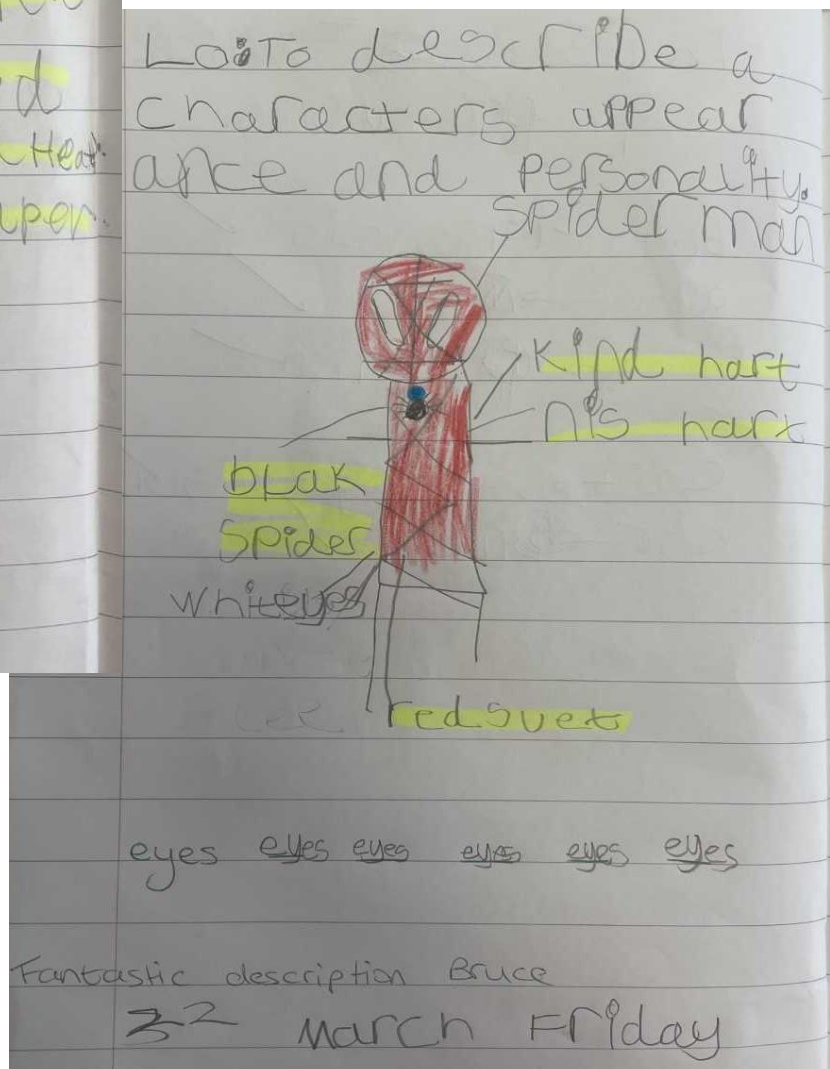 d
Hea
per
Lo:To describe a
characters appear
ance and personality.
Spider man
kind hart
nis hart
blak
Spider
whiteyes
red suet
eyes eyes eyes eyes eyes eyes
Fantastic description Bruce
2 March Friday